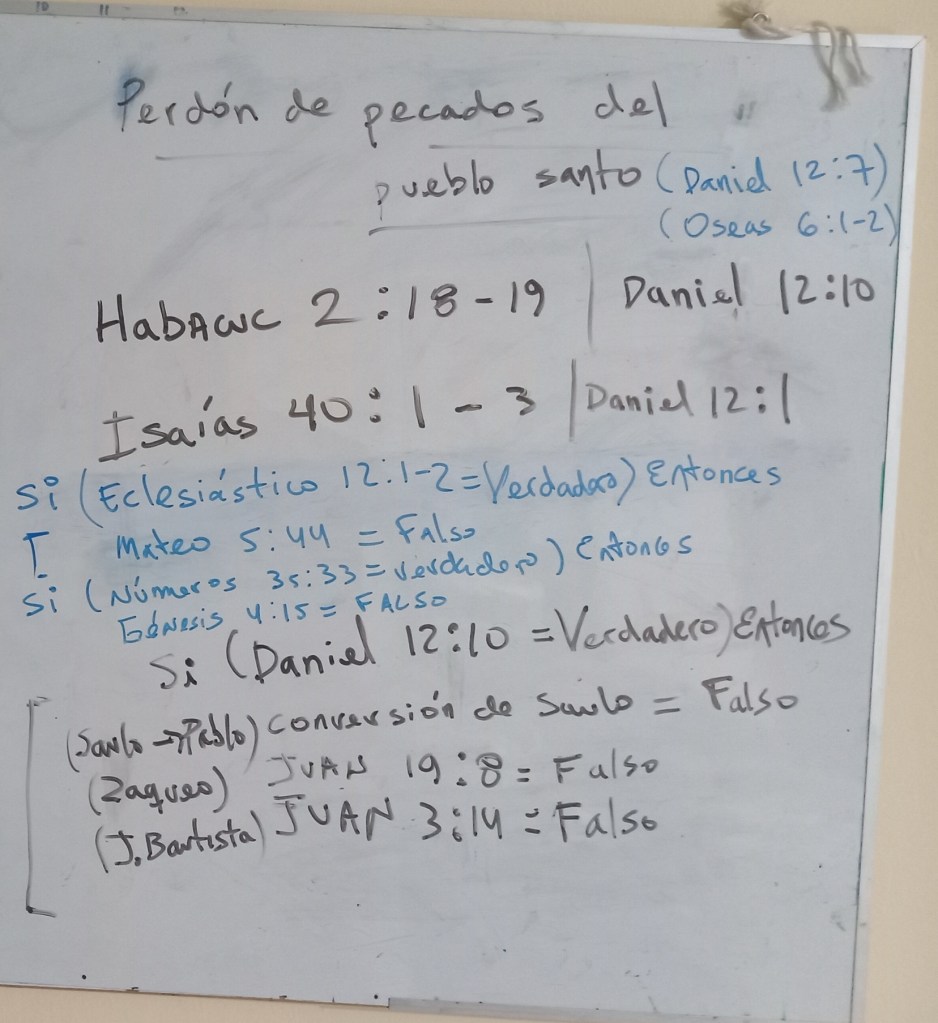 Perdón de pecados del
pueblo santo (Daniel 12:7)
(Oseas 6:1-2)
HabAcuc 2:18-19 | Daniel 12:10
Isaías 40:1-3 | Daniel 12:1
Si (Eclesiástico 12:1-2=Verdadero) Entonces
[ Mateo 5:44 = Falso
Si (Números 35:33=verdadero) Entonces
Génesis 4:15 = FALSO
Si (Daniel 12:10 =Verdadero) Entonces
(Saulo→Pablo) conversión de Saulo = Falso
(Zaqueo) JUAN 19:8 = Falso
(J.Bautista) JUAN 3:14 = Falso